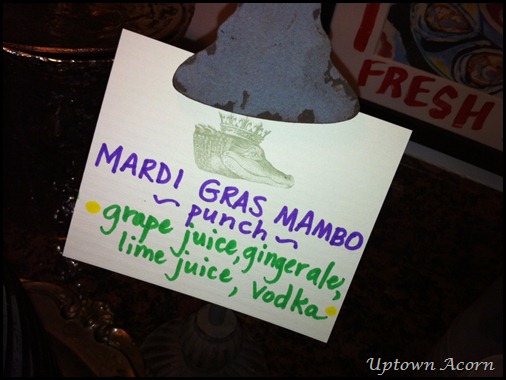 I
FRESH
MARDI GRAS MAMBO
~ punch ~
grape juice, gingerale,
lime juice, vodka
Uptown Acorn